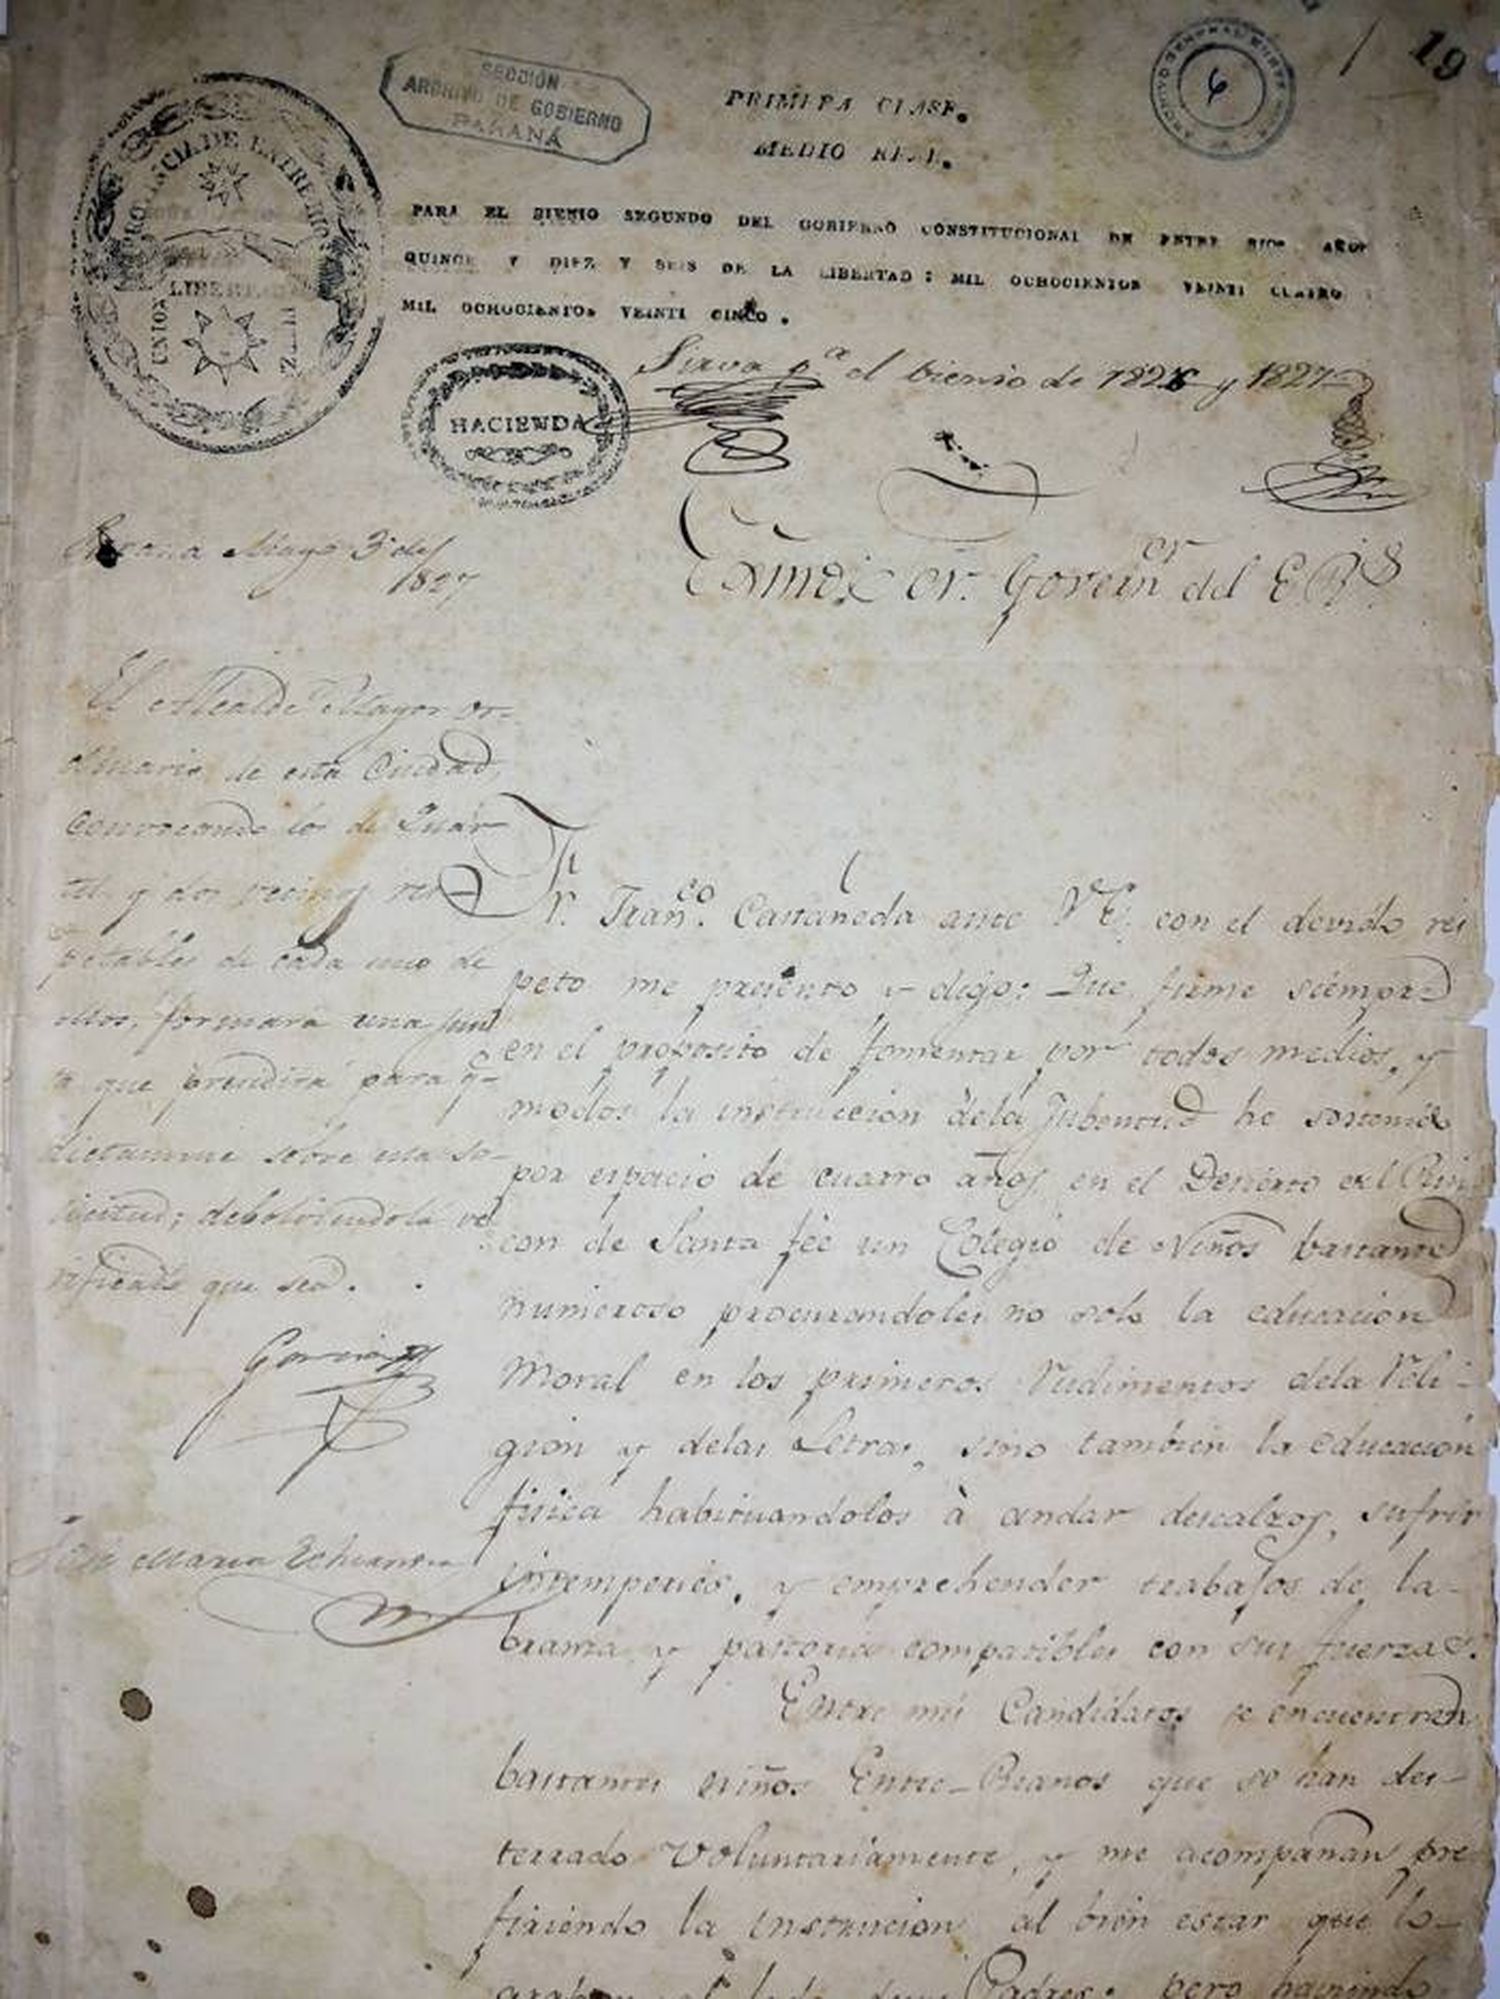 19
SECCIÓN
ARCHIVO DE GOBIERNO
PARANÁ
6
PRIMERA CLASE.
MEDIO REAL.
PROVINCIA DE ENTRE RIOS
LIBERTAD
UNION
PARA EL BIENIO SEGUNDO DEL GOBIERNO CONSTITUCIONAL DE ENTRE RIOS AÑOS
QUINCE Y DIEZ Y SEIS DE LA LIBERTAD: MIL OCHOCIENTOS VEINTI CUATRO
MIL OCHOCIENTOS VEINTI CINCO.
HACIENDA
Sirva pa. el bienio de 1826 y 1827
Parana Mayo 3 de
1827
Exmo. Sor. Governor. del E. Rs.
El Alcalde Mayor or-
dinario de esta Ciudad,
convocando los de Quar
tel y dos vecinos res-
petables de cada uno de
ellos, formará una Jun
ta que precidirá para q.
dictamine sobre esta so-
licitud; debolviendola ve
rificado que sea.
Jose Maria
Fr. Franco. Castañeda ante V. E. con el devido res
peto me presento y digo: Que firme siempre
en el proposito de fomentar por todos medios, y
modos la instruccion dela Jubentud he sostenido
por espacio de cuatro años en el Decierto del Rin
con de Santa fée un Colegio de Niños bastante
numeroso procurandoles no solo la educacion
Moral en los primeros Rudimentos dela Reli-
gion y delas Letras, sino tambien la educacion
fisica habituandolos à andar descalzos, sufrir
intemperies, y emprehender trabajos de la-
branza y pastoria compatibles con sus fuerzas.
Entre mis Candidatos se encuentran
bastantes niños Entre-Rianos que se han des-
terrado Voluntariamente, y me acompañan pre
firiendo la instrucion al bien estar que lo-
graban al lado de sus Padres: pero haviendo